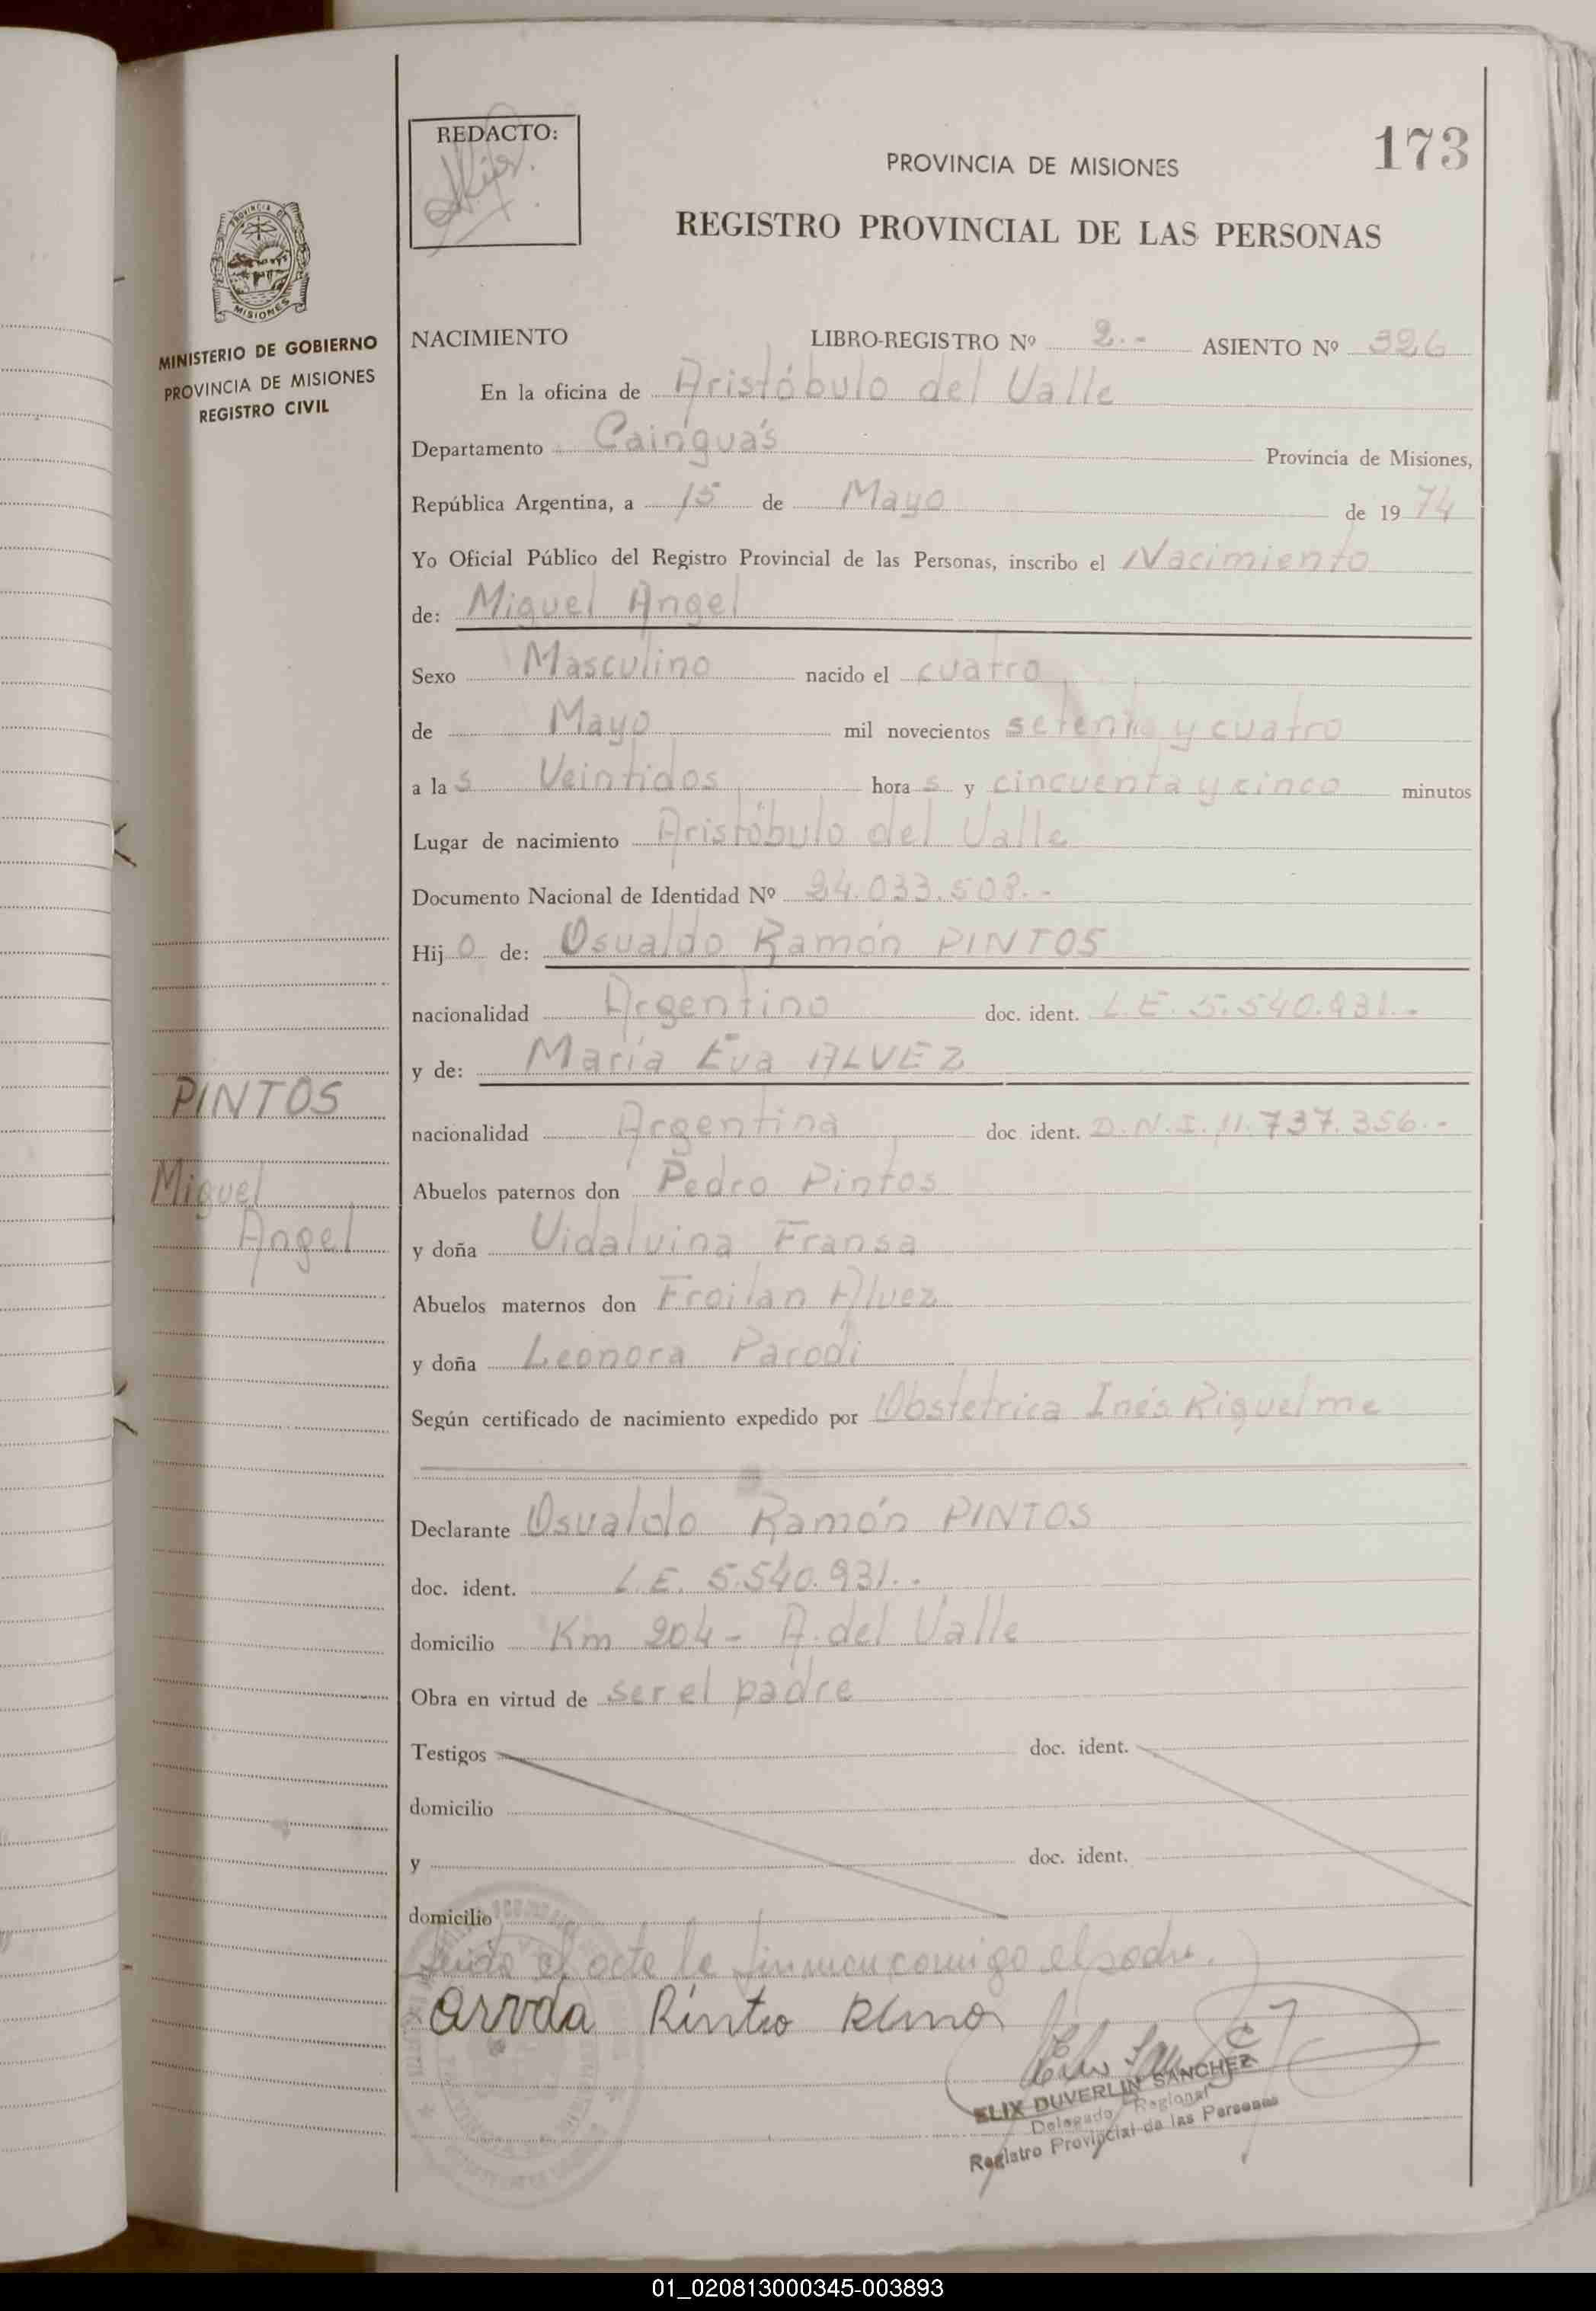 173
REDACTO:
PROVINCIA DE MISIONES
REGISTRO PROVINCIAL DE LAS PERSONAS
PROVINCIA DE
MISIONES
MINISTERIO DE GOBIERNO
PROVINCIA DE MISIONES
REGISTRO CIVIL
NACIMIENTO LIBRO-REGISTRO Nº 2.- ASIENTO Nº 326
En la oficina de Aristóbulo del Valle
Departamento Cainguás Provincia de Misiones,
República Argentina, a 15 de Mayo de 19 74
Yo Oficial Público del Registro Provincial de las Personas, inscribo el Nacimiento
de: Miguel Angel
Sexo Masculino nacido el cuatro
de Mayo mil novecientos setenta y cuatro
a la s Veintidos hora s y cincuenta y cinco minutos
Lugar de nacimiento Aristóbulo del Valle
Documento Nacional de Identidad Nº 24.033.508.-
Hij o de: Osualdo Ramón PINTOS
nacionalidad Argentino doc. ident. L.E. 5.540.931.-
y de: María Eva ALVEZ
nacionalidad Argentina doc ident. D.N.I. 11.737.356.-
PINTOS
Miguel
Angel
Abuelos paternos don Pedro Pintos
y doña Vidalvina Fransa
Abuelos maternos don Froilan Alvez
y doña Leonora Parodi
Según certificado de nacimiento expedido por Obstetrica Inés Riquelme
Declarante Osualdo Ramón PINTOS
doc. ident. L.E. 5.540.931.-
domicilio Km 204 - A. del Valle
Obra en virtud de ser el padre
Testigos doc. ident.
domicilio
y doc. ident.
domicilio
Leida el acta la firman conmigo el padre.
ELIX DUVERLIN SANCHEZ
Delegado Regional
Registro Provincial de las Personas
01_020813000345-003893